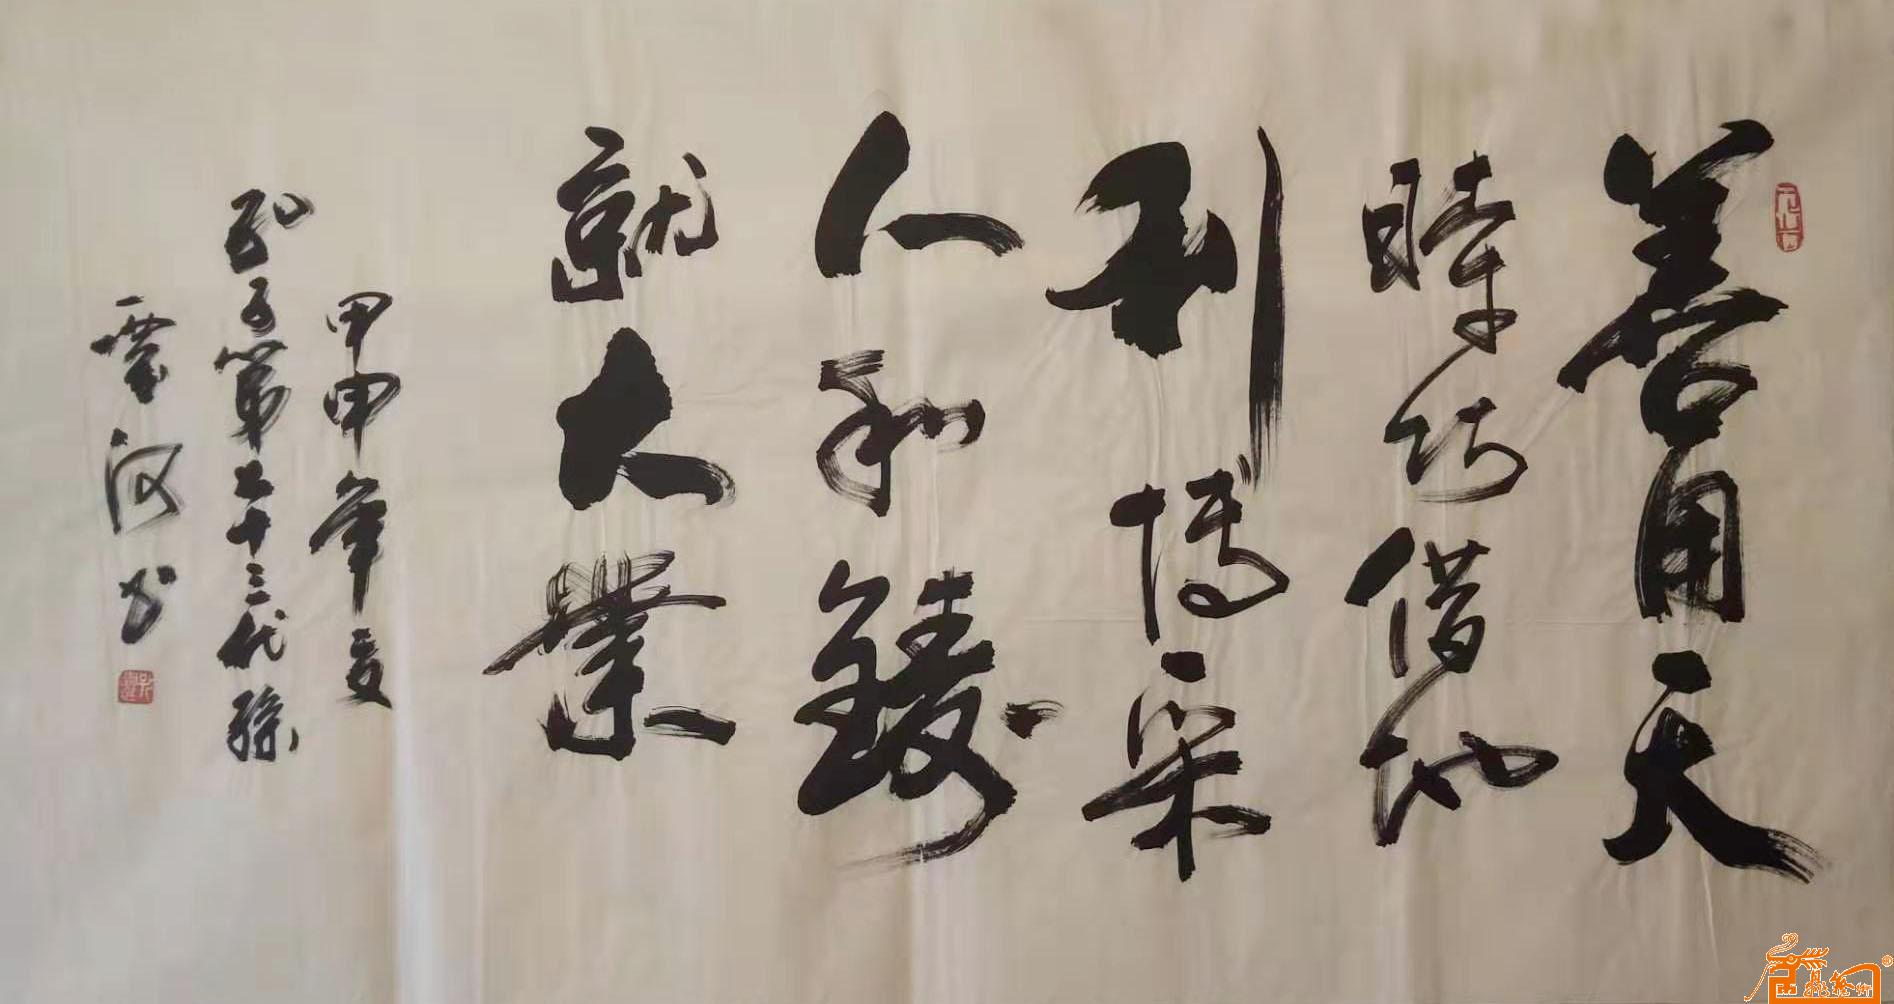 善用天
時巧借地
利博采
人和鑄
就大業
甲申年夏
孔子第七十三代孫
河书